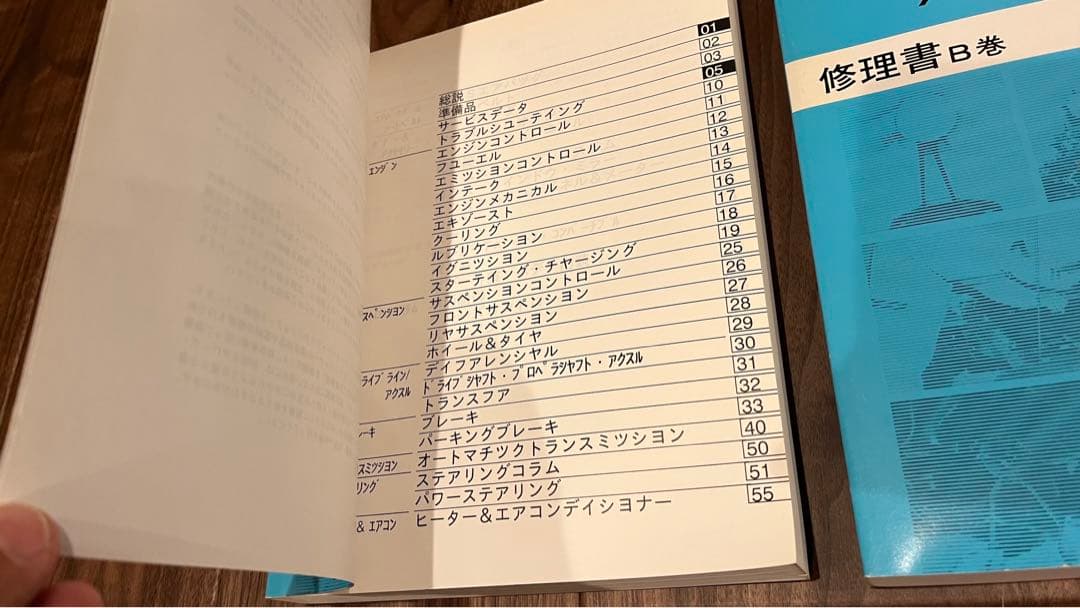 総説 01
準備品 02
サービスデータ 03
トラブルシューテイング 05
エンジン
エンジンコントロール 10
フユーエル 11
エミツシヨンコントロール 12
インテーク 13
エンジンメカニカル 14
エキゾースト 15
クーリング 16
ルブリケーシヨン 17
イグニツシヨン 18
スターテイング・チヤージング 19
スペンション
サスペンシヨンコントロール 25
フロントサスペンシヨン 26
リヤサスペンシヨン 27
ホイール&タイヤ 28
ライブライン/
アクスル
デイフアレンシヤル 29
ドライブシャフト・プロペラシャフト・アクスル 30
トランスフア 31
ーキ
ブレーキ 32
パーキングブレーキ 33
スミッション
オートマチツクトランスミツシヨン 40
リング
ステアリングコラム 50
パワーステアリング 51
& エアコン
ヒーター&エアコンデイシヨナー 55
修理書B巻